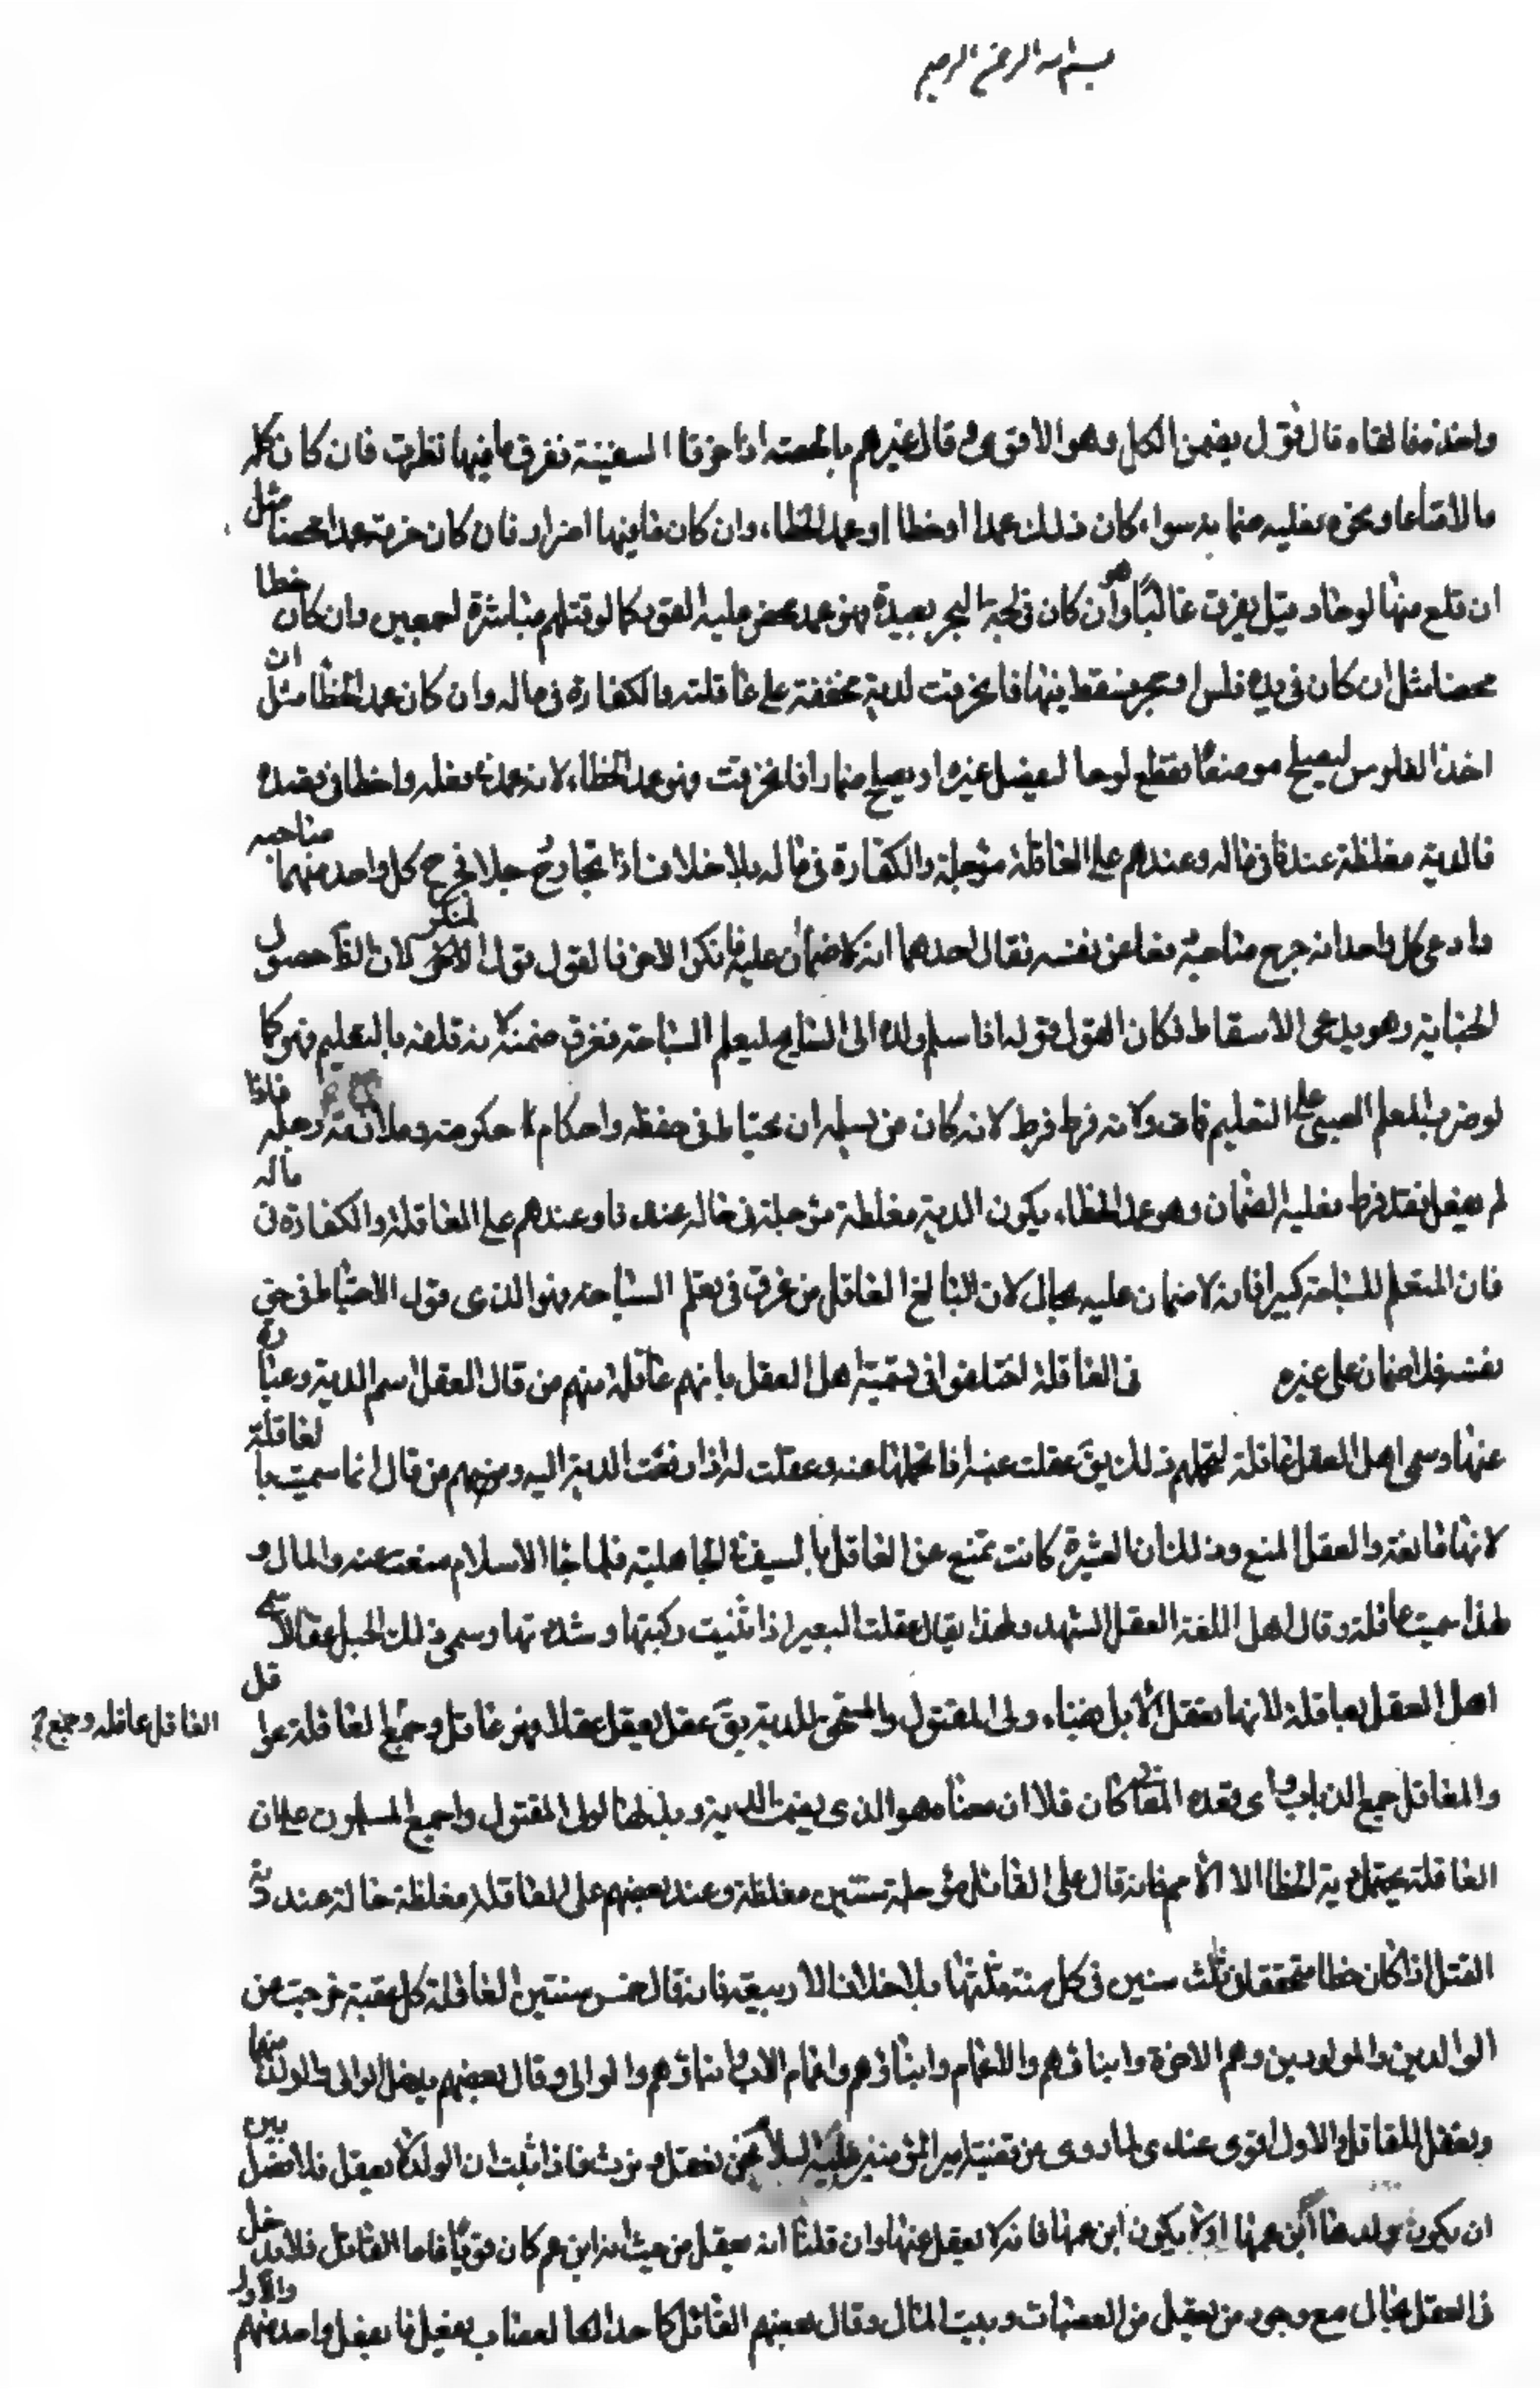 بسم الله الرحمن الرحيم
واحد فالقاه قال قول يضمن الكل وهو الاقوى و قال غيرهم بالحصة اذا خرقا السفينة فغرق ما فيها نظرت فان كان كله
مالا متاعا و نحوه فعليه ضمانه سواء كان ذلك عمدا او خطا او عمد الخطاء وان كان ما فيها احرار فان كان خرقه عمدا محضا مثل
ان قلع منها لوحا وقيل يغرق غالبا وان كان في لجة البحر بعيدة فهو عمد محض عليه القود كما لو قتلهم مباشرة اجمعين وان كان خطا
محضا مثل ان كان في يده فلس او حجر فسقط فيها فانخرقت لدية مخففة على عاقلته والكفارة في ماله وان كان عمد الخطا مثل ان
اخذ الفلوس ليصلح موضعا فقطع لوحا ليعضل غيره او يصلح ضمارا فانخرقت فهو عمد الخطاء لانه عمد في فعله واخطا في قصده
فالدية مغلظة عندنا في ماله وعندهم على العاقلة مؤجلة والكفارة في ماله بلا خلاف اذا تجارح رجلا فجرح كل واحد منهما صاحبه
وادعى كل واحد انه جرح صاحبه دفعا عن نفسه فقال احدهما انه لا ضمان عليه فانكر الاخر فالقول قول المنكر لان الظ حصول
الجناية وهو يدعى الاسقاط فكان القول قوله اذا سلم ولده الى السابح ليعلم السباحة فغرق ضمنه لانه تلفه بالتعليم فهو كما
لو ضرب المعلم الصبي على التعليم فمات ولانه فرط فرط لانه كان من سبيله ان يحتاط في حفظه واحكام حكومته وملازمة رجله فاذا
لم يفعل فقد فرط فعليه الضمان وهو عمد الخطاء يكون الدية مغلظة مؤجلة في ماله عندنا وعندهم على العاقلة والكفارة في ماله
فان المتعلم للسباحة كبيرا فانه لا ضمان عليه بحال لان البالغ العاقل من غرق في تعلم السباحة فهو الذي قول الاحتياط في حق
نفسه فلا ضمان على غيره في العاقلة اختلفوا في تسمية اهل العقل بانهم عاقلة منهم من قال العقل اسم الدية وعبارة
عنها وسمى اهل العقل عاقلة لتحملهم ذلك يق عقلت عنه اذا تحملتها عنه وعقلت له اذا دفعت الدية اليه ومنهم من قال انما سميت بالعاقلة
لانها مانعة والعقل المنع وذلك ان العشيرة كانت تمنع عن القاتل بالسيف في الجاهلية فلما جاء الاسلام منعت عنه والمال و
لهذا سميت عاقلة وقال اهل اللغة العقل الشد ولهذا يقال عقلت البعير اذا ثنيت ركبتها وشددتها وسمى ذلك الحبل عقالا سمى
اهل العقل عاقلة لانها تعقل الابل بفناء ولى المقتول والمستحق للدية يق عقل يعقل عقلا فهو عاقل وجمع العاقلة عواقل
العاقل عاقله وجمع
والمعاقل جمع الديات واي تعده المتقا كان فلا ان معناه هو الذي يضمن الدية وبذلها لولى المقتول واجمع المسلمون على ان
العاقلة يحمل دية الخطا الا الاصم فانه قال على القاتل مؤجلة سنتين مغلظة وعند بعضهم على العاقلة مغلظة حالة عند دية
القتل اذا كان خطا محققة في ثلث سنين في كل سنة ثلثها بلا خلاف الا ربيعة فانه قال خمس سنتين العاقلة كل عصبة خرجت من
الوالدين والمولودين وهم الاخوة وابناؤهم والاعمام وابناؤهم واعمام الاب وابناؤهم والموالى وقال بعضهم يدخل الوالد والولد فيها
ويعقل القاتل والاول اقوى عندى لما روى من قضية امير المؤمنين عليه السلام نحن نعقل و نرث فاذا ثبت ان الولد لا يعقل فلا فصل بين
ان يكون ولدها ابن عمها اولا يكون ابن عمها فانه لا يعقل عنها وان قلنا انه يعقل من حيث انه ابن عم كان قويا فاما القاتل فلا مدخل
في العقل بحال مع وجود من يعقل من العصبات وبيت المال وقال بعضهم القاتل كاحد العصبات يعقل ما يعقل واحد منهم والاول